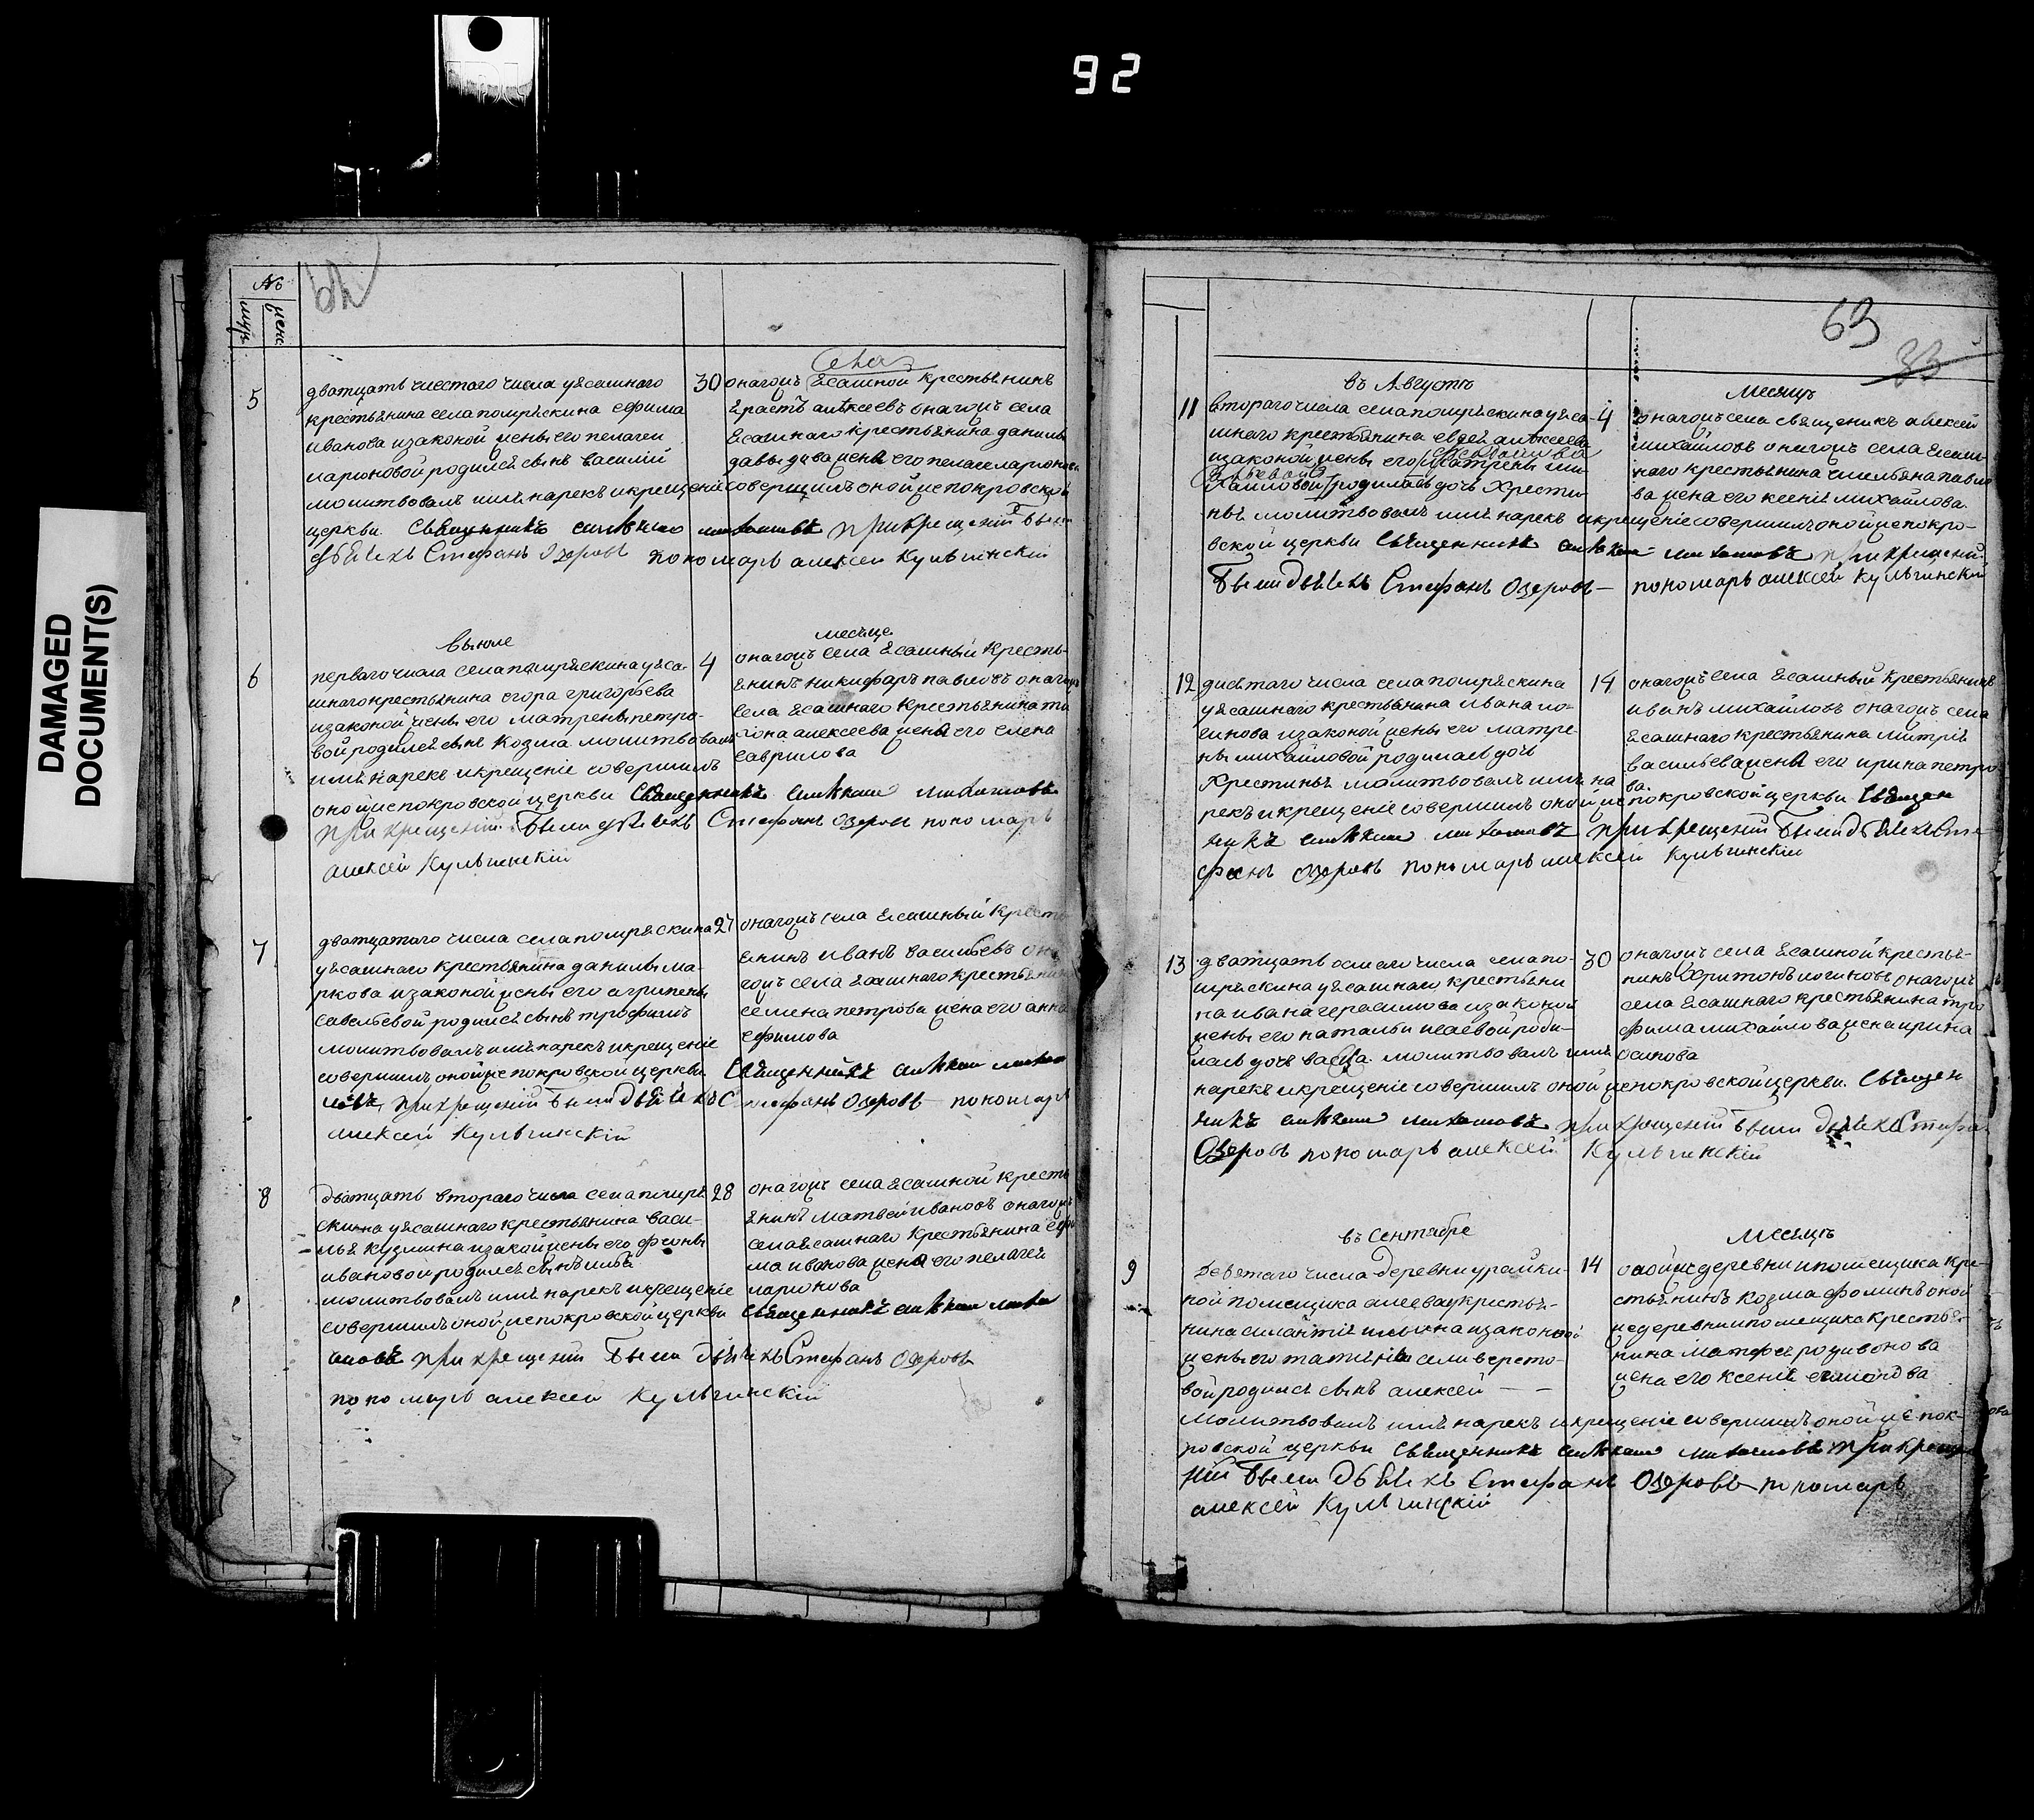 92
DAMAGED
DOCUMENT(S)
№
муж. жен.
5
дватцать шестаго числа уясашнаго
крестьянина села помряскина ефима
иванова изаконой жены его пелагеи
ларионовой родился сынъ василий
молитвовалъ имя нарекъ икрещение совершилъ онойже покровской
церкви Священникъ алѣксей михайловъ при крещений были
дьячекъ Стефанъ Озеровъ пономарь алексей Кульгинскій
30
села
онагожъ ясашной крестьянинъ
ерастъ алѣксеевъ онагожъ села
ясашнаго крестьянина данилы
давыдова жена его пелагея ларионова
6
въ июле
месяце
перваго числа села помряскина уяса-
шнаго крестьянина егора григорьева
изаконой жены его матрены петро-
вой родился сынъ козма молитвовалъ
имя нарекъ икрещение совершилъ
онойже покровской церкви Священникъ алѣксей михайловъ
при крещений были дьячекъ Стефанъ Озеровъ пономарь
алексей Кульгинскій
4
онагожъ села ясашный кресть-
янинъ никифаръ павловъ онагожъ
села ясашнаго крестьянина
алексеева жена его елена
гаврилова
7
дватцатаго числа села помряскина
уясашнаго крестьянина данилы ма-
ркова изаконой жены его агрипены
савельевой родился сынъ трофимъ
молитвовалъ имя нарекъ икрещение
совершилъ онойже покровской церкви Священникъ алѣксей михай
ловъ, при крещений были дьячекъ Стефанъ Озеровъ пономарь
алексей Кульгинскій
27
онагожъ села ясашный кресть
янинъ иванъ васильевъ она
гожъ села ясашнаго крестьянина
семена петрова жена его анна
ефимова
8
дватцать втораго числа села помря
скина уясашнаго крестьянина васи-
лья кузмина изаконой жены его феоны
ивановой родился сынъ илья
молитвовалъ имя нарекъ икрещение
совершилъ онойже покровской церкви Священникъ алѣксей михай
ловъ при крещений были дьячекъ Стефанъ Озеровъ
пономарь алексей Кульгинскій
28
онагожъ села ясашной кресть
янинъ матвей ивановъ онагожъ
села ясашнаго крестьянина ефи
ма иванова жена его пелагея
ларионова
63
33
въ Августе
месяцѣ
11
втораго числа села помряскина уяса-
шнаго крестьянина евдея алѣксеева
изаконой жены его матрены ми-
хайловой родилась дочь Христи
нья молитвовалъ имя нарекъ икрещение совершилъ онойже покро-
вской церкви Священникъ алѣксей михайловъ при крещений
были дьячекъ Стефанъ Озеровъ — пономарь алексей Кульгинскій
4
онагожъ села священикъ алексей
михайловъ онагожъ села ясаш-
наго крестьянина емельяна павло
ва жена его ксения михайлова
12
десятаго числа села помряскина
уясашнаго крестьянина ивана ло-
гинова изаконой жены его матре-
ны михайловой родилась дочь
Христинья молитвовалъ имя на
рекъ икрещение совершилъ онойже покровской церкви Священ
никъ алѣксей михайловъ при крещений были дьячекъ Сте
фанъ Озеровъ пономарь алексей Кульгинскій
14
онагожъ села ясашный крестьянинъ
иванъ михайловъ онагожъ села
ясашнаго крестьянина митрия
васильева жена его ирина петро
ва.
13
дватцать осмаго числа села по-
мряскина уясашнаго крестьяни
на ивана герасимова изаконой
жены его натальи исаевой роди-
лась дочь васса молитвовалъ имя
нарекъ икрещение совершилъ онойже покровской церкви. Священ
никъ алѣксей михайловъ при крещений были дьячекъ Стефа
Озеровъ пономарь алексей Кульгинскій
30
онагожъ села ясашной крестья-
нинъ Харитонъ логиновъ онагожъ
села ясашнаго крестьянина тро
фима михайлова жена ирина
осипова
въ Сентябре
месяцѣ
9
девятаго числа деревни урайки-
ной помещика алеева крестья-
нина силантия ильина изаконной
жены его татияны селиверсто-
вой родился сынъ алексей — —
молитвовалъ имя нарекъ икрещение совершилъ онойже пок-
ровской церкви Священникъ алѣксей михайловъ при креще
ний были дьячекъ Стефанъ Озеровъ пономарь
алексей Кульгинскій
14
онойже деревни ипомещика кре-
стьянинъ козма фоминъ оной
же деревни ипомещика крестья-
нина матфея родивонова
жена его ксения